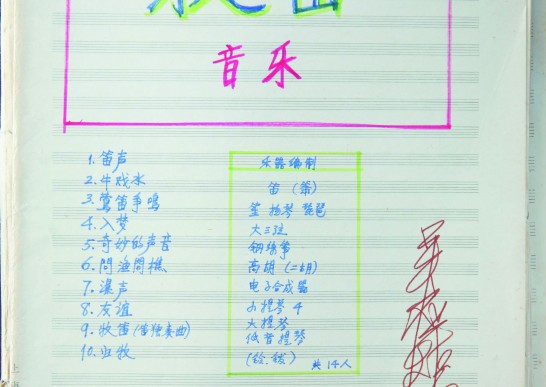 笛
音乐
1. 笛声
2. 牛戏水
3. 莺笛争鸣
4. 入梦
5. 奇妙的声音
6. 問渔問樵
7. 瀑声
8. 友谊
9. 牧笛(笛独奏曲)
10. 归牧
乐器编制
笛 (箫)
笙 扬琴 琵琶
大三弦
钢丝筝
高胡 (二胡)
电子合成器
小提琴 4
大提琴
低音提琴
共 14人